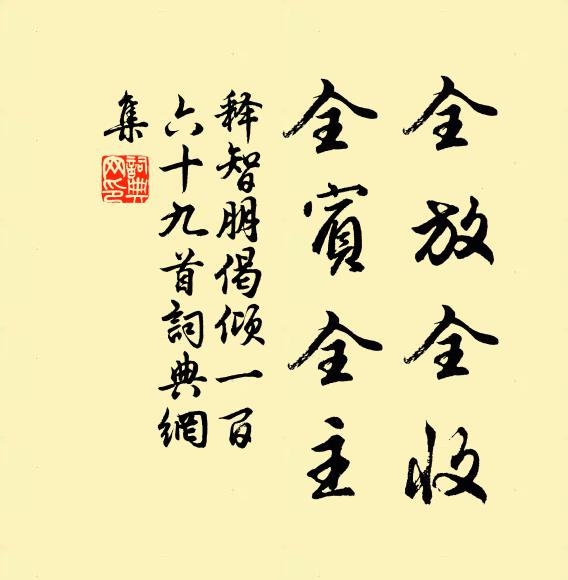 全放全收
全賓全主
释智朋偈倾一百
六十九首詞典網
集
詞典网印